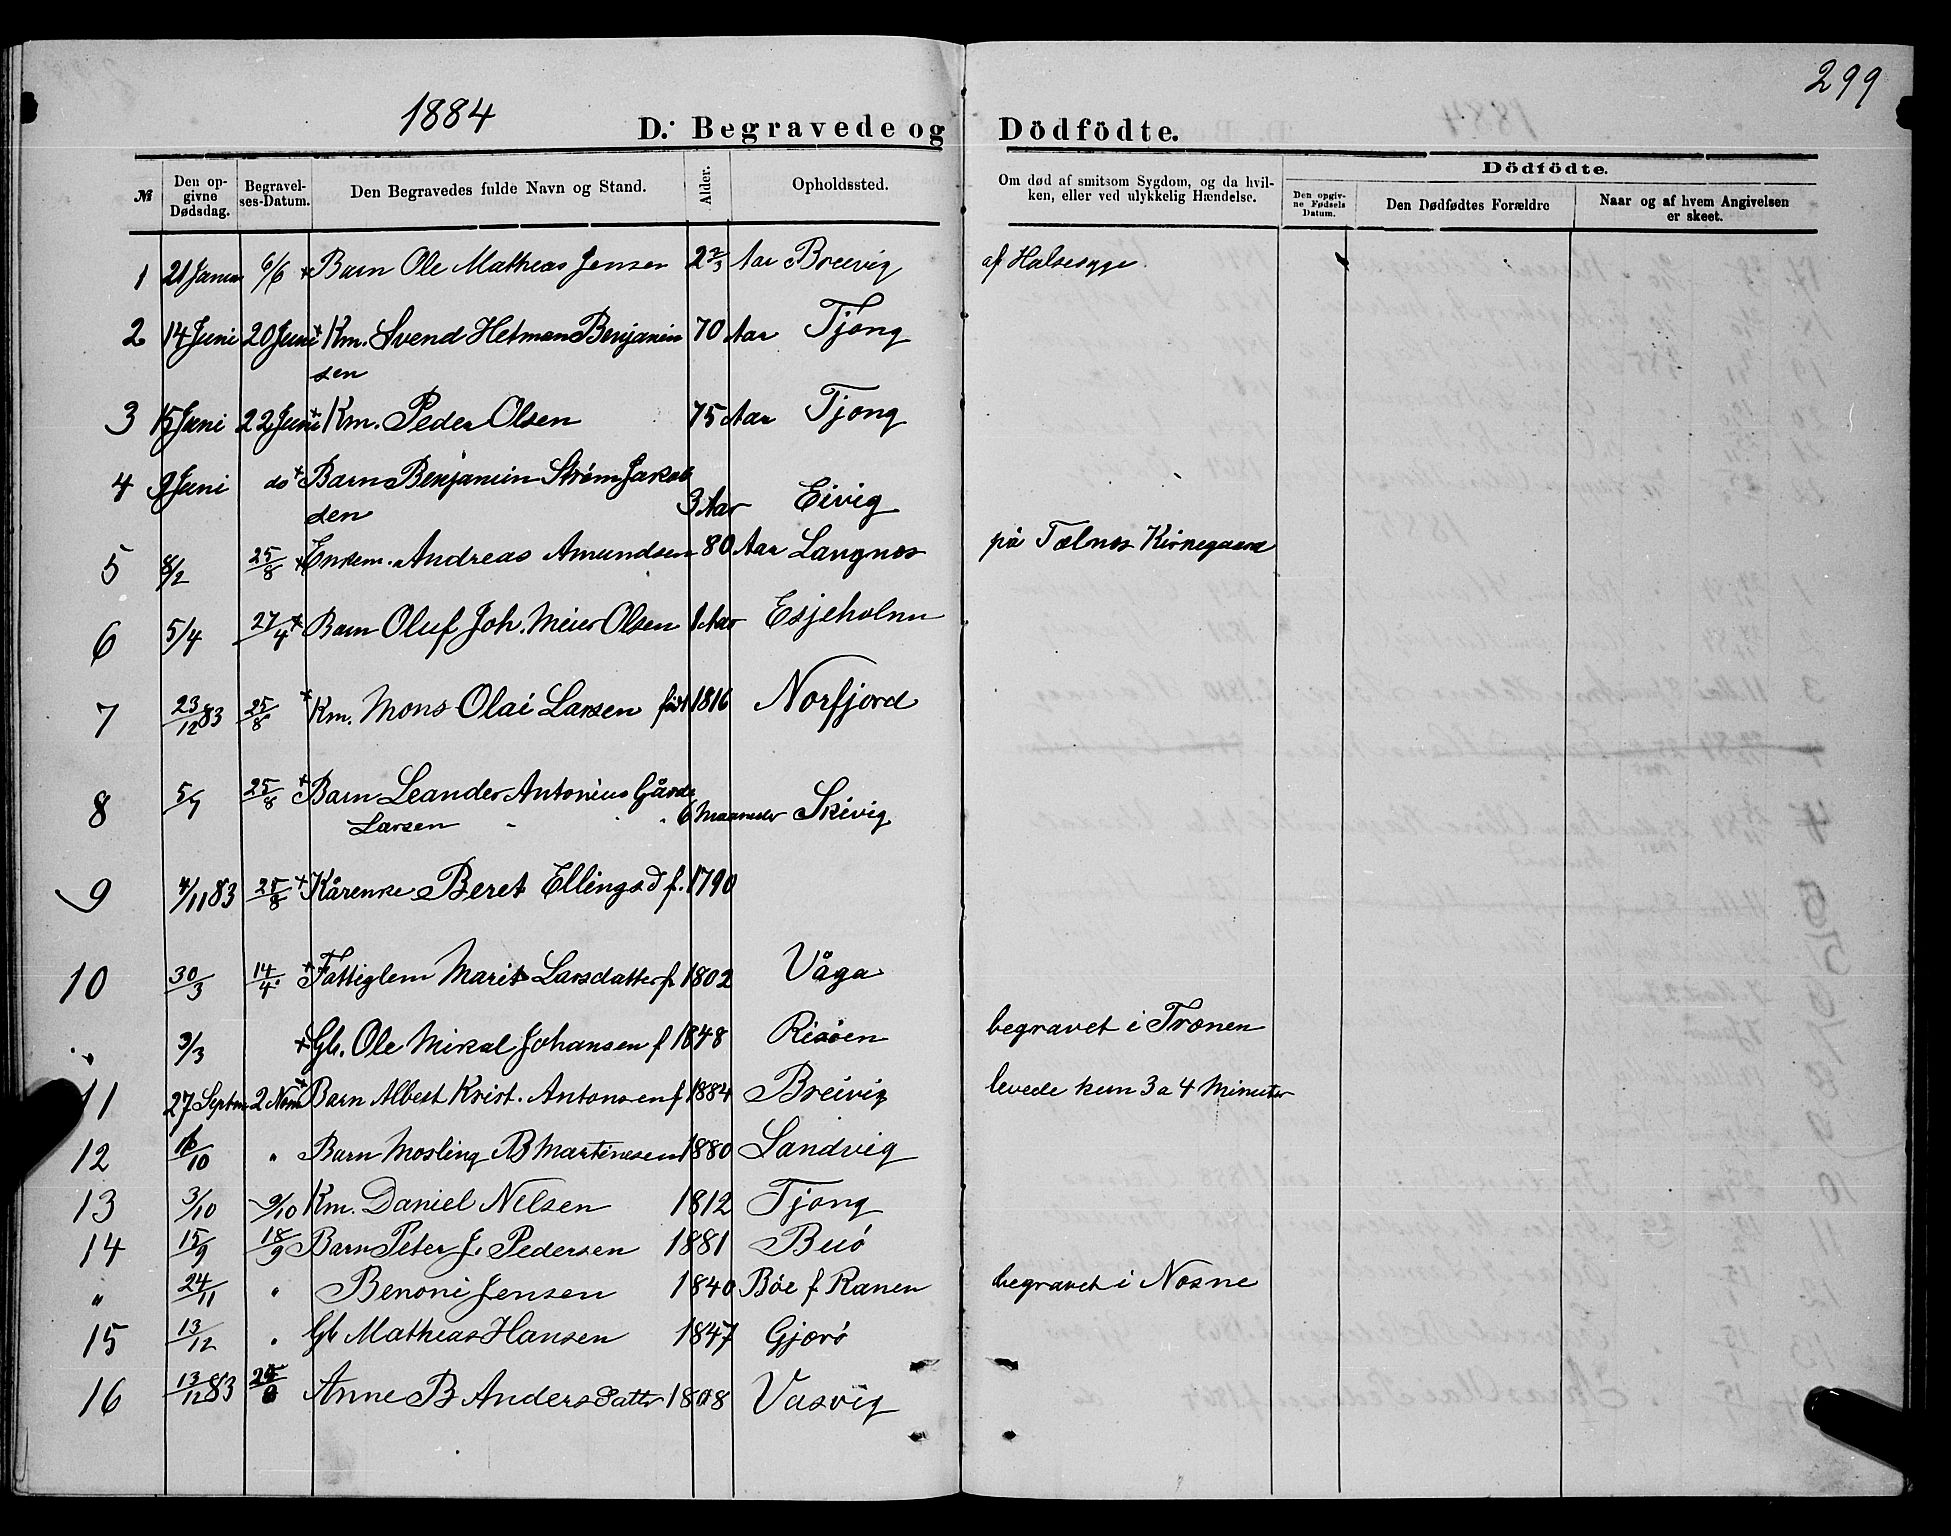 299
1884
D. Begravede og Dödfödte.
№ Den opgivne Dødsdag. Begravelses-Datum. Den Begravedes fulde Navn og Stand. Alder. Opholdssted. Om død af smitsom Sygdom, og da hvilken, eller ved ulykkelig Hændelse. Dödfödte. Den opgivne Fødsels Datum. Den Dødfødtes Forældre Naar og af hvem Angivelsen er skeet.
1 21 Januar 6/6 + Barn Ole Mathias Jensen 2 2/3 Aar Breivig af Halsesyge.
2 14 Juni 20 Juni + Km. Svend Hetman Benjamin 70 Aar Tjong
sen
3 15 Juni 22 Juni + Km. Peder Olsen 75 Aar Tjong
4 9 Juni do + Barn Benjamin Strøm Jakob
sen 3 Aar Eivig
5 8/2 25/8 + Enkem. Andreas Amundsen 80 Aar Langnes på Tælnes Kirkegaard
6 5/4 27/4 + Barn Oluf Joh. Meier Olsen 1 Aar Esjeholm
7 23/12 83 25/8 + Km. Mons Olai Larsen født 1816 Norfjord
8 5/7 25/8 + Barn Leander Antonius Gårds
Larsen 6 Maaneder Skivig
9 4/11 83 25/8 + Kårenke Beret Ellingsd f. 1790
10 30/3 14/4 + Fattiglem Marit Larsdatter f. 1802 Våga
" 3/3 + Gb. Ole Mikal Johansen f 1848 Risøen begravet i Trænen
11 27 Septem 2 Nov + Barn Albert Krist. Antonsen f 1884 Breivig levede kun 3 a 4 Minuter
12 16/10 " Barn Mosling B Martinesen 1880 Sandvig
13 3/10 9/10 Km. Daniel Nilsen 1812 Tjong
14 15/9 18/9 Barn Peter J. Pedersen 1881 Buø
" 24/11 " Benoni Jensen 1840 Bøe f Ranen begravet i Næsne
15 13/12 " Gb Mathias Hansen 1847 Gjærø
16 13/12 83 Anne B Andersdatter 1808 Vasvig